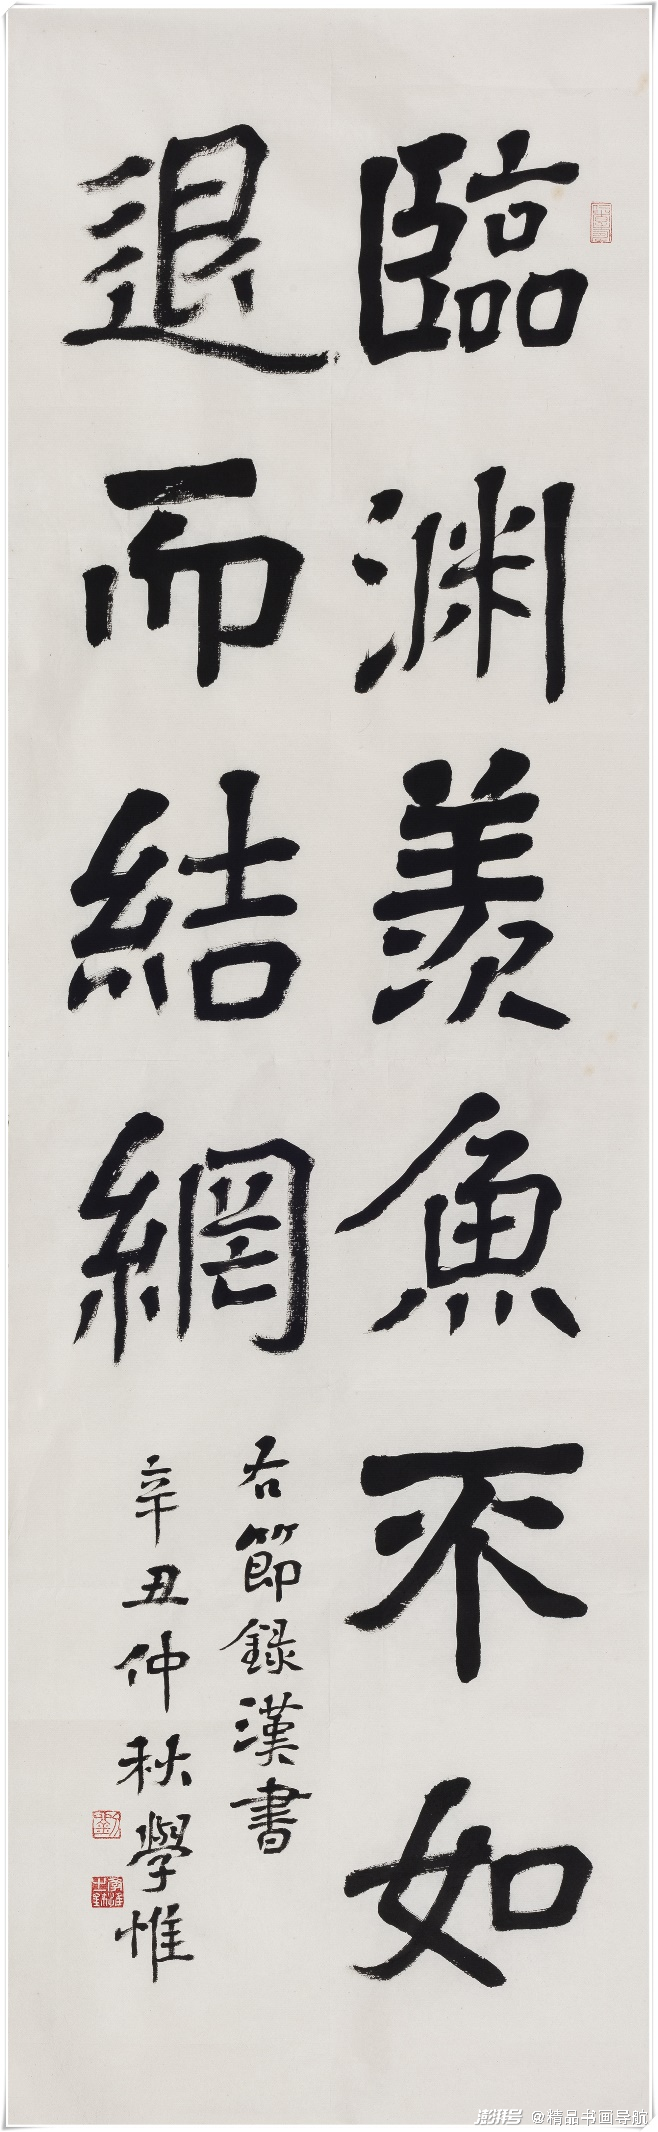 臨渊羡魚不如
退而結網
右節録漢書
辛丑仲秋學惟
澎湃号 @精品书画导航